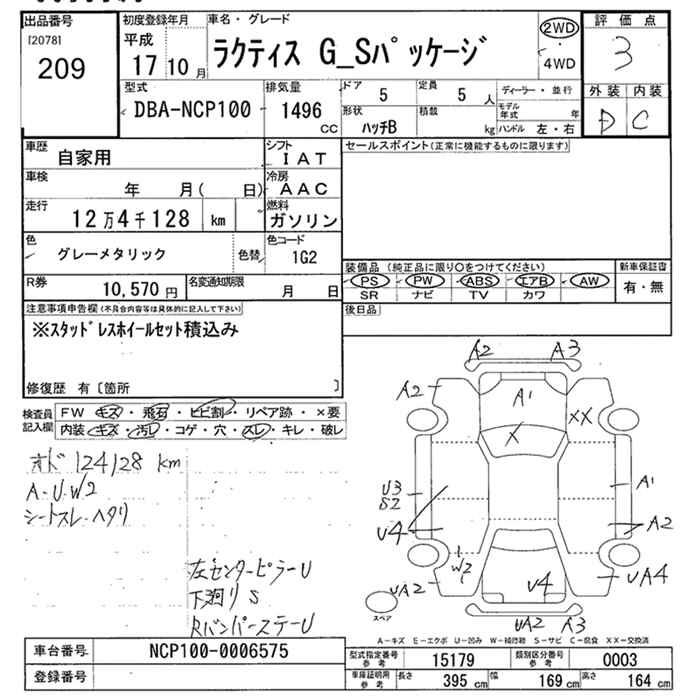 出品番号 初度登録年月 車名・グレード 評価点
[2078] 平成 2WD
209 17 10月 ラクティス G_Sパッケージ 4WD 3
型式 排気量 ドア 定員 ディーラー・並行 外装 内装
DBA-NCP100 1496 CC 5 5 人 モデル年式 年 D C
形状 積載
ハッチB kg ハンドル 左・右
車歴 自家用 シフト IAT セールスポイント(正常に機能するものに限ります)
車検 年 月( 日) 冷房 AAC
走行 12万4千128 km 燃料 ガソリン
色 グレーメタリック 色替 色コード 1G2
装備品 (純正品に限り○をつけてください) 新車保証書
R券 10,570円 名変通知期限 月 日 PS PW ABS エアB AW 有・無
SR ナビ TV カワ
注意事項申告欄(不具合内容等は具体的に記入して下さい) 後日品
※スタッドレスホイールセット積込み
修復歴 有〔箇所 〕
検査員記入欄 FW キズ・飛石・ヒビ割・リペア跡・×要
内装・キズ・汚レ・コゲ・穴・スレ・キレ・破レ
オド 124128 km
A・U・W2
シートスレ・ヘタリ
左センターピラーU
下廻り S
RバンパーステーU
A2 A3
A2 A1 XX
X
U3 A1
S2
U4 A2
W2
UA2 U4 UA4
スペア UA2 A3
A－キズ E－エクボ U－凹み W－補修跡 S－サビ C－腐食 XX－交換済
車台番号 NCP100-0006575 型式指定番号参考 15179 類別区分番号参考 0003
登録番号 車庫証明用参考 長さ 395 cm 幅 169 cm 高さ 164 cm